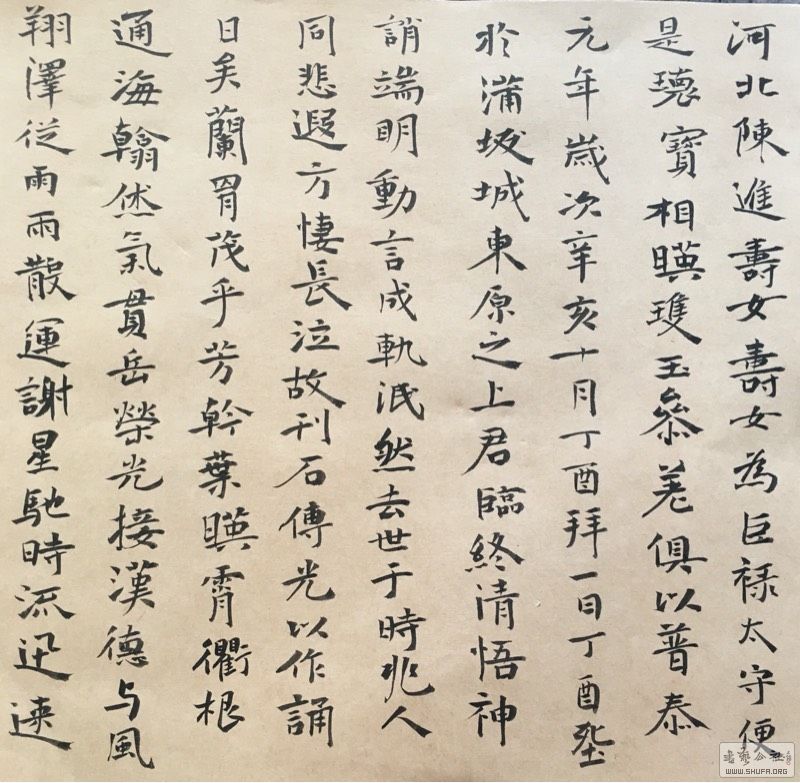 河北陳進壽女壽女為巨祿太守便
是瓌寶相暎瓊玉叅差俱以普泰
元年歲次辛亥十月丁酉拜一日丁酉
於蒲坂城東原之上君臨終清悟神
誚端明動言成軌泯然去世于時兆人
同悲遐方悽長泣故刊石傳光以作誦
日矣蘭冑茂乎芳幹葉暎霄衢根
通海翰烋氣貫岳榮光接漢德与風
翔澤從雨雨散運謝星馳時流迅速
書藝公社
WWW.SHUFA.ORG